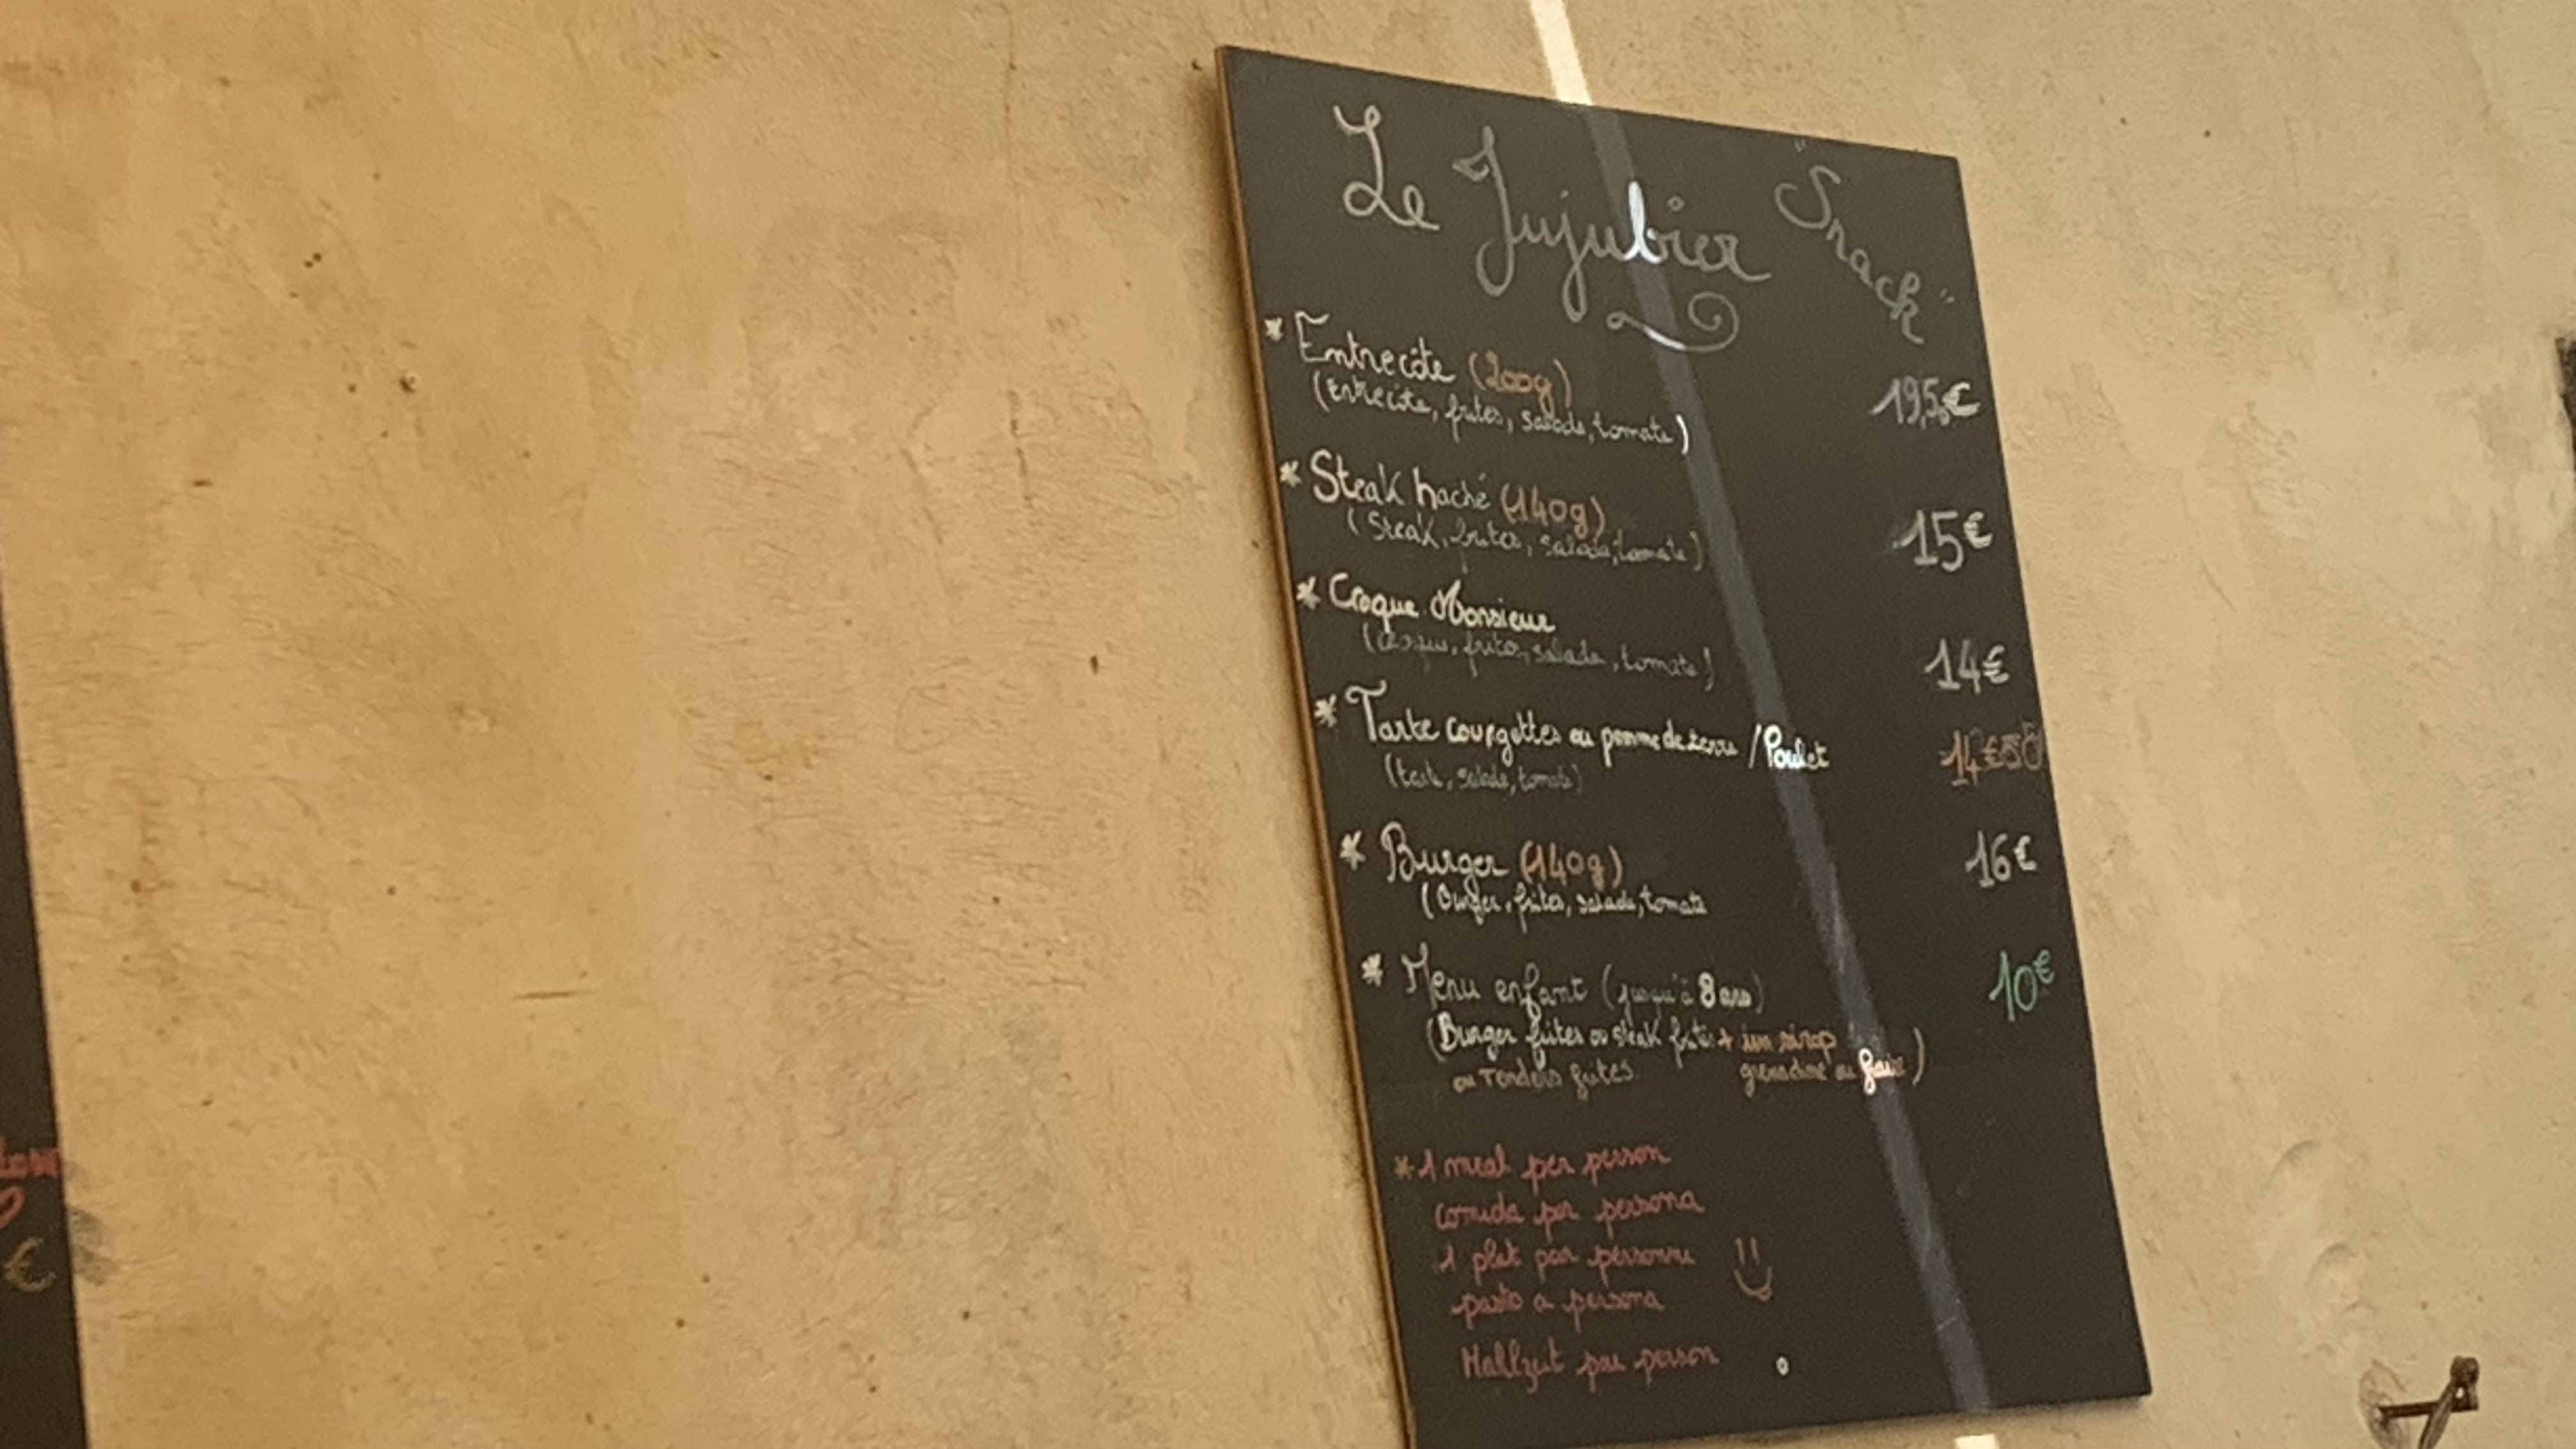 Le Jujubier "Snack"
* Entrecôte (200g) 19,5€
(Entrecôte, frites, salade, tomate)
* Steak haché (140g) 15€
(Steak, frites, salade, tomate)
* Croque Monsieur 14€
(croque, frites, salade, tomate)
* Tarte courgettes ou pomme de terre / Poulet 14€50
(tarte, salade, tomate)
* Burger (140g) 16€
(Burger, frites, salade, tomate
* Menu enfant (jusqu'à 8 ans) 10€
(Burger frites ou steak frites + un sirop
ou Tenders frites. grenadine ou fraise)
* 1 meal per person
comida por persona
1 plat par personne
pasto a persona
Mahlzeit par person
€